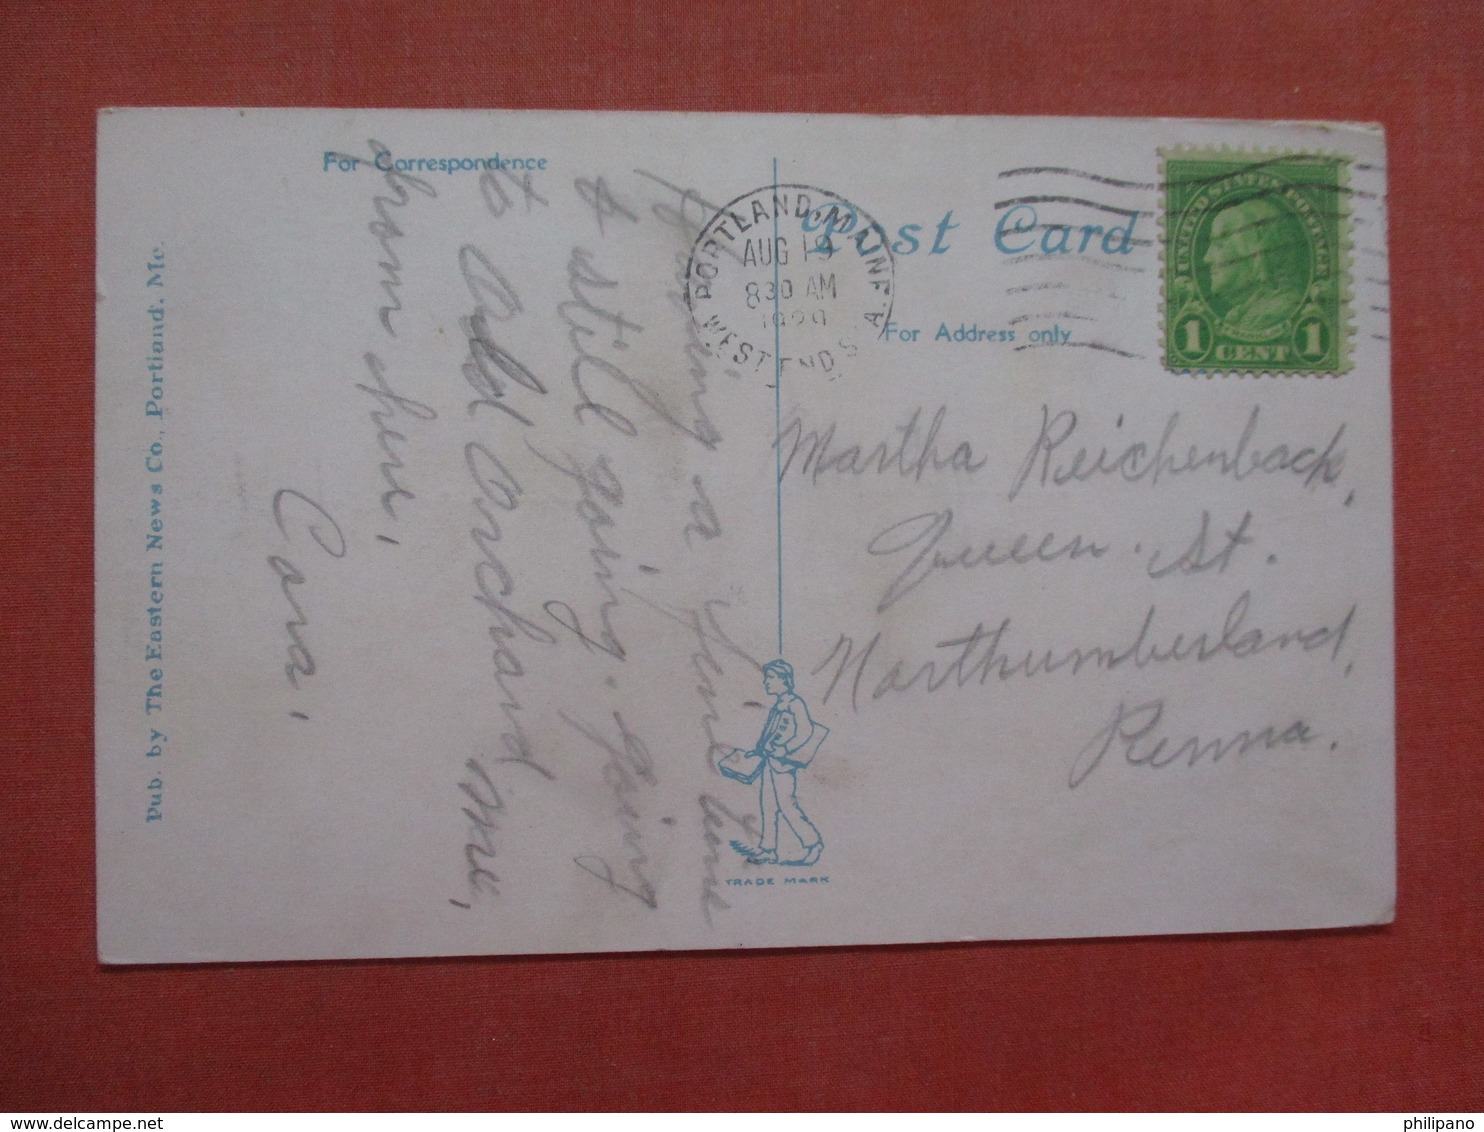 For Correspondence
Having a fine time
& still going. going
to Old Orchard me,
from here,
Cora,
Pub. by The Eastern News Co., Portland, Me.
Post Card
For Address only
PORTLAND, MAINE
AUG 19
830 AM
1929
WEST END STA.
UNITED STATES POSTAGE
1 CENT 1
Martha Reichenback,
Queen. St.
Northumberland,
Penna.
TRADE MARK
philipano